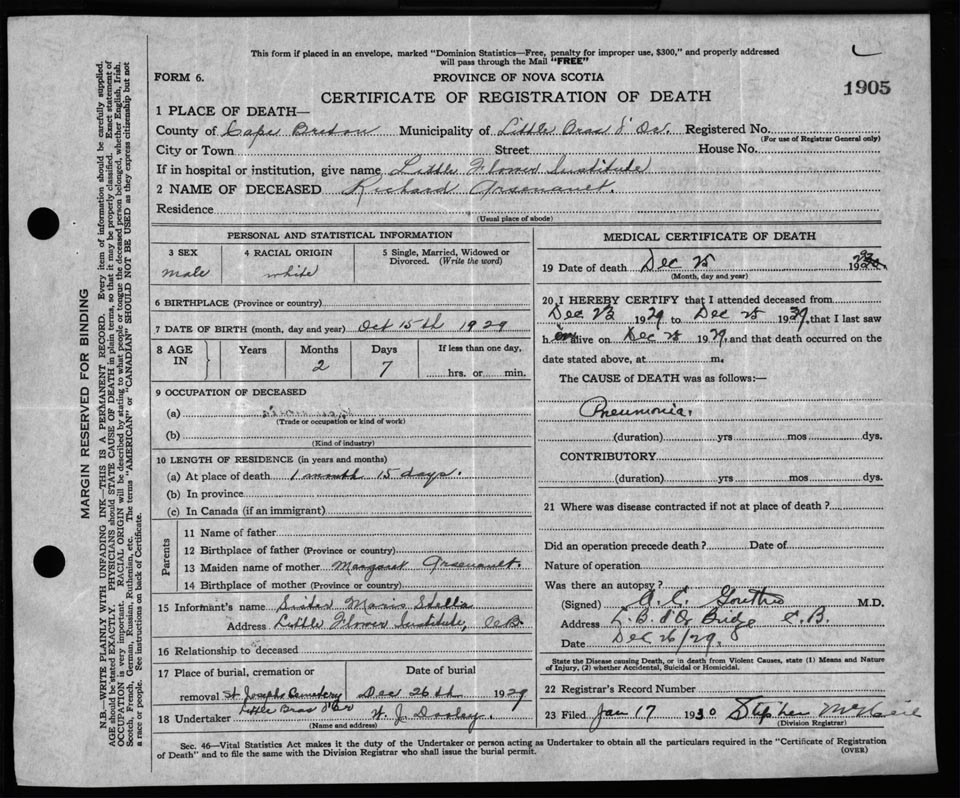 This form if placed in an envelope, marked "Dominion Statistics—Free, penalty for improper use, $300," and properly addressed
will pass through the Mail "FREE"
FORM 6.
PROVINCE OF NOVA SCOTIA
1905
CERTIFICATE OF REGISTRATION OF DEATH
1 PLACE OF DEATH—
County of Cape Breton Municipality of Little Bras d'Or. Registered No.
(For use of Registrar General only)
City or Town Street House No.
If in hospital or institution, give name Little Flower Institute
2 NAME OF DECEASED Richard Arsenault.
Residence
(Usual place of abode)
PERSONAL AND STATISTICAL INFORMATION
3 SEX 4 RACIAL ORIGIN 5 Single, Married, Widowed or
Divorced. (Write the word)
male white
6 BIRTHPLACE (Province or country)
7 DATE OF BIRTH (month, day and year) Oct 15th 1929
8 AGE IN Years Months Days If less than one day,
2 7 hrs. or min.
9 OCCUPATION OF DECEASED
(a)
(Trade or occupation or kind of work)
(b)
(Kind of industry)
10 LENGTH OF RESIDENCE (in years and months)
(a) At place of death 1 month 15 days.
(b) In province
(c) In Canada (if an immigrant)
Parents
11 Name of father
12 Birthplace of father (Province or country)
13 Maiden name of mother Margaret Arsenault.
14 Birthplace of mother (Province or country)
15 Informant's name Sister Maris Stella
Address Little Flower Institute, C.B.
16 Relationship to deceased
17 Place of burial, cremation or Date of burial
removal St Josephs Cemetery Dec 26th 1929
Little Bras d'Or
18 Undertaker J. Dooley.
(Name and address)
MEDICAL CERTIFICATE OF DEATH
19 Date of death Dec 25 19
(Month, day and year)
20 I HEREBY CERTIFY that I attended deceased from
Dec 23 1929 to Dec 25 1929, that I last saw
h im alive on Dec 25 1929, and that death occurred on the
date stated above, at m.
The CAUSE of DEATH was as follows:—
Pneumonia.
(duration) yrs mos dys.
CONTRIBUTORY
(duration) yrs mos dys.
21 Where was disease contracted if not at place of death?
Did an operation precede death? Date of
Nature of operation
Was there an autopsy?
(Signed) M.D.
Address L. B. d'Or Bridge C.B.
Date Dec 26/29.
State the Disease causing Death, or in death from Violent Causes, state (1) Means and Nature
of Injury, (2) whether Accidental, Suicidal or Homicidal.
22 Registrar's Record Number
23 Filed Jan 17 1930 Stephen McNeil
(Division Registrar)
Sec. 46—Vital Statistics Act makes it the duty of the Undertaker or person acting as Undertaker to obtain all the particulars required in the "Certificate of Registration
of Death" and to file the same with the Division Registrar who shall issue the burial permit.
(OVER)
MARGIN RESERVED FOR BINDING
N.B.—WRITE PLAINLY WITH UNFADING INK—THIS IS A PERMANENT RECORD. Every item of information should be carefully supplied.
AGE should be stated EXACTLY. PHYSICIANS should STATE CAUSE OF DEATH in plain terms, so that it may be properly classified. Exact statement of
OCCUPATION is very important. RACIAL ORIGIN will be described by stating to what people or tongue the deceased person belonged, whether English, Irish,
Scotch, French, German, Russian, Ruthenian, etc. The terms "AMERICAN" or "CANADIAN" SHOULD NOT BE USED as they express citizenship but not
a race or people. See instructions on back of Certificate.